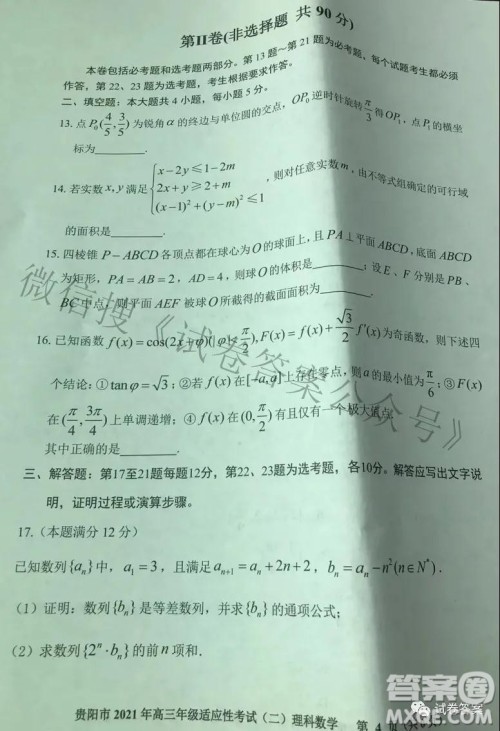 第II卷(非选择题 共90分)
本卷包括必考题和选考题两部分。第13题~第21题为必考题，每个试题考生都必须
作答，第22、23题为选考题，考生根据要求作答。
二、填空题：本大题共4小题，每小题5分。
13. 点P₀(4/5, 3/5)为锐角α的终边与单位圆的交点，OP₀逆时针旋转π/3得OP₁，点P₁的横坐
标为________.
14. 若实数x,y满足{x-2y≤1-2m
2x+y≥2+m
(x-1)²+(y-m)²≤1
，则对任意实数m，由不等式组确定的可行域
的面积是________.
15. 四棱锥P-ABCD各顶点都在球心为O的球面上，且PA⊥平面ABCD，底面ABCD
为矩形，PA=AB=2，AD=4，则球O的体积是________；设E、F分别是PB、
BC中点，则平面AEF被球O所截得的截面面积为________.
16. 已知函数f(x)=cos(2x+φ)(|φ|<π/2), F(x)=f(x)+√3/2 f′(x)为奇函数，则下述四
个结论：①tanφ=√3；②若f(x)在[-a,a]上存在零点，则a的最小值为π/6；③F(x)
在(π/4, 3π/4)上单调递增；④f(x)在(0, π/2)有且仅有一个极大值点.
其中正确的是________.
三、解答题：第17至21题每题12分，第22、23题为选考题，各10分。解答应写出文字说
明，证明过程或演算步骤。
17.（本题满分12分）
已知数列{aₙ}中，a₁=3，且满足aₙ₊₁=aₙ+2n+2，bₙ=aₙ-n²(n∈N*).
（1）证明：数列{bₙ}是等差数列，并求{bₙ}的通项公式；
（2）求数列{2ⁿ·bₙ}的前n项和.
贵阳市2021年高三年级适应性考试（二）理科数学 第4页(共
微信搜《试卷答案公众号》
试卷答案